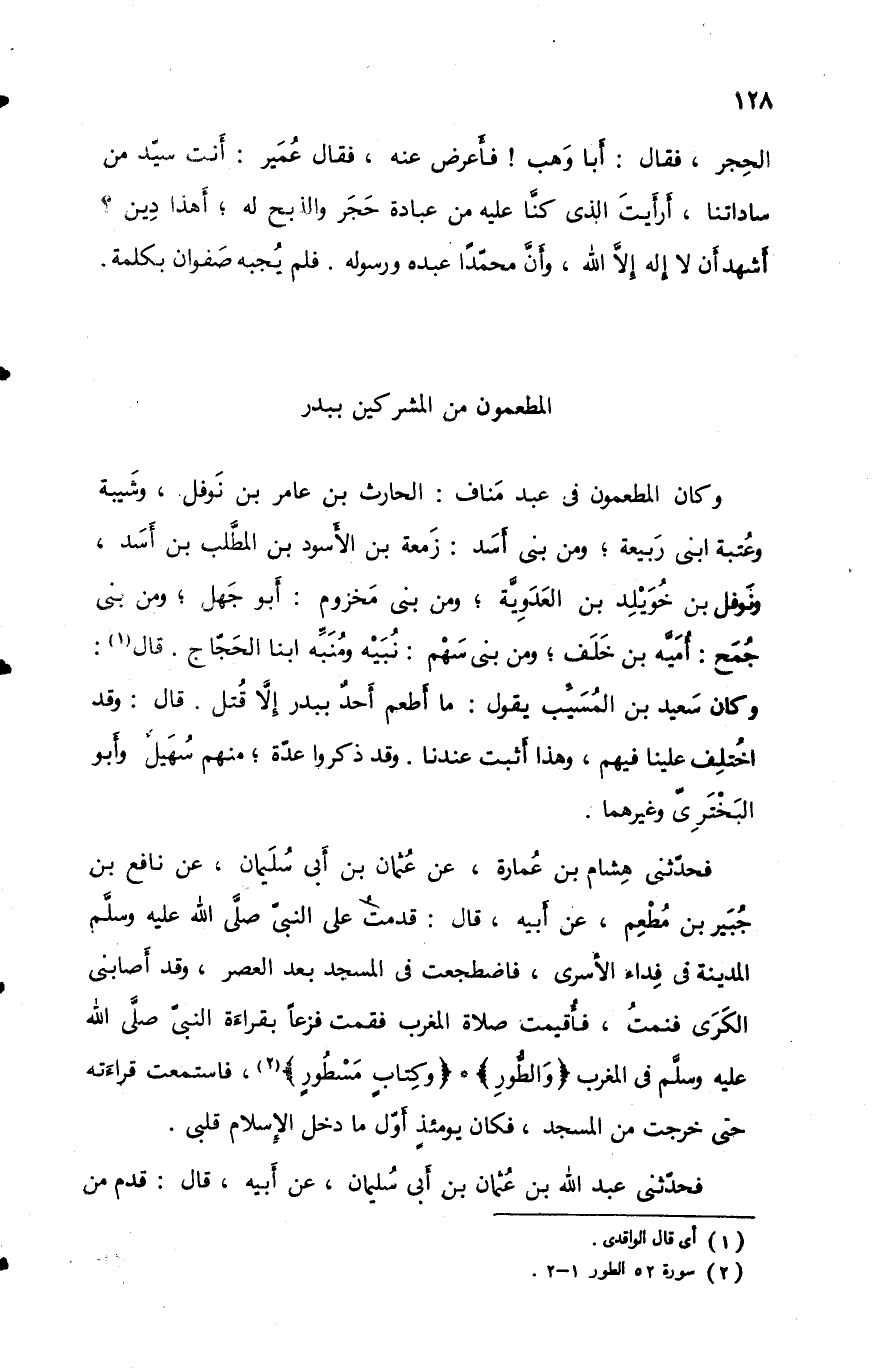 ١٢٨
الحِجر ، فقال : أَبا وَهب ! فأَعرض عنه ، فقال عُمَير : أَنت سيّد من
ساداتنا ، أَرأَيتَ الذى كنَّا عليه من عبادة حَجَر والذبح له ؛ أَهذا دِين ؟
أَشهد أَن لا إِله إِلاَّ الله ، وأَنَّ محمّدًا عبده ورسوله . فلم يُجبه صَفوان بكلمة .
المطعمون من المشركين ببدر
وكان المطعمون فى عبد مَناف : الحارث بن عامر بن نَوفل ، وشَيبة
وعُتبة ابنى رَبيعة ؛ ومن بنى أَسَد : زَمعة بن الأَسود بن المطَّلب بن أَسَد ،
ونَوفل بن خُوَيْلِد بن العَدَوِيَّة ؛ ومن بنى مَخزوم : أَبو جَهل ؛ ومن بنى
جُمَح : أُمَيَّه بن خَلَف ؛ ومن بنى سَهْم : نُبَيْه ومُنَبِّه ابنا الحَجّاج . قال(١) :
وكان سَعيد بن المُسَيِّب يقول : ما أَطعم أَحدٌ ببدر إِلَّا قُتل . قال : وقد
اختُلِف علينا فيهم ، وهذا أَثبت عندنا . وقد ذكروا عدّة ؛ منهم سُهَيلٌ وأَبو
البَخْتَرِىّ وغيرهما .
فحدّثنى هِشام بن عُمارة ، عن عُثمان بن أَبى سُلَيمان ، عن نافع بن
جُبَير بن مُطْعِم ، عن أَبيه ، قال : قدمتُ على النبىّ صلَّى الله عليه وسلَّم
المدينة فى فِداء الأَسرى ، فاضطجعت فى المسجد بعد العصر ، وقد أَصابنى
الكَرَى فنمتُ ، فأُقيمت صلاة المغرب فقمت فزعاً بقراءَة النبىّ صلَّى الله
عليه وسلَّم فى المغرب ﴿وَالطُّورِ﴾ * ﴿وكِتابٍ مَسْطُورٍ﴾(٢) ، فاستمعت قراءَته
حتى خرجت من المسجد ، فكان يومئذٍ أَوّل ما دخل الإِسلام قلبى .
فحدّثنى عبد الله بن عُثمان بن أَبى سُليمان ، عن أَبيه ، قال : قدم من
(١) أى قال الواقدى .
(٢) سورة ٥٢ الطور ١–٢ .